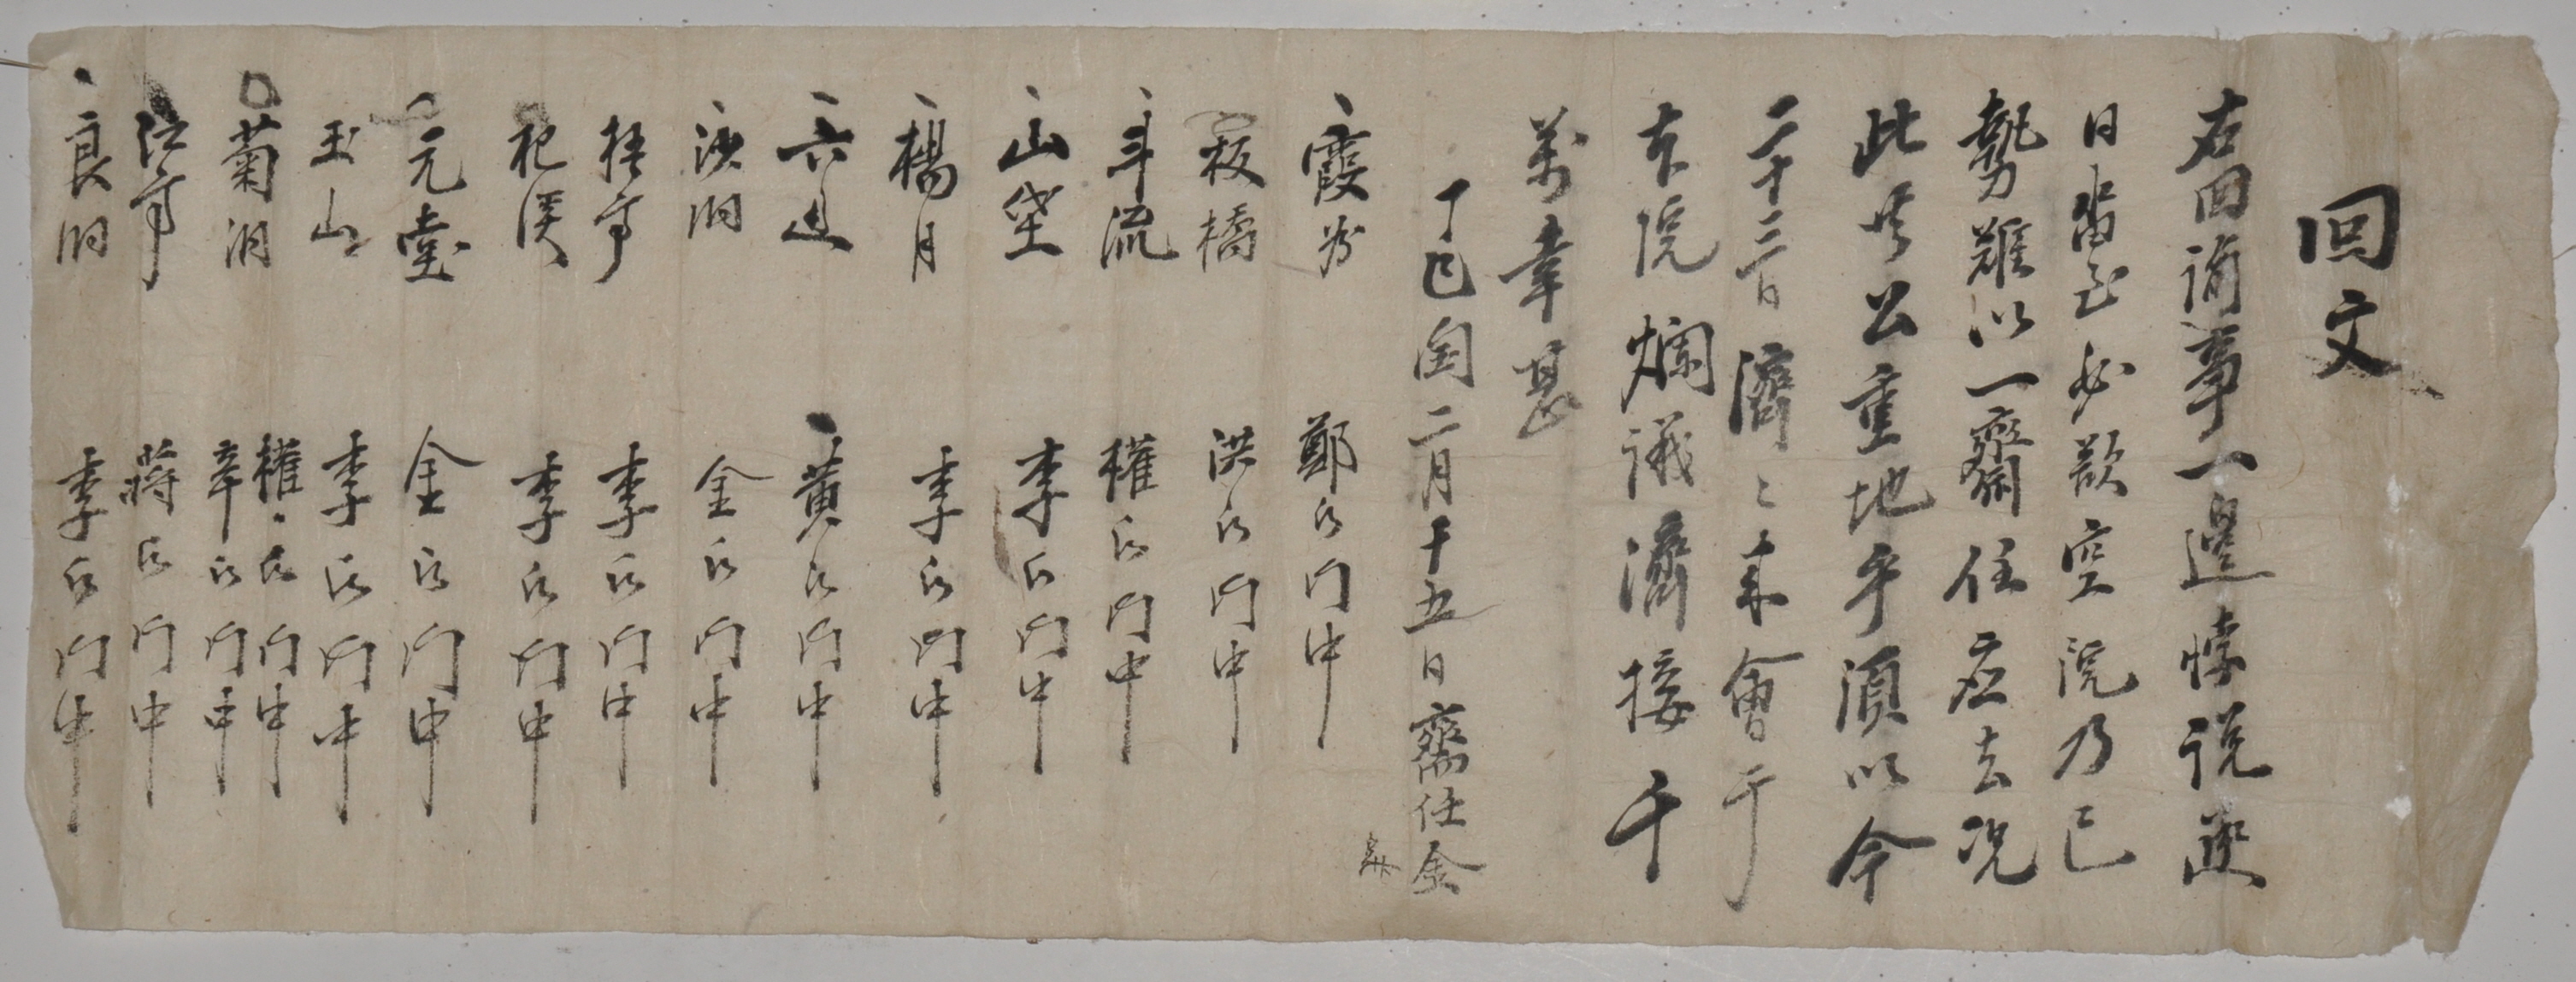 回文
右回諭事一邊悖説逆
日沓至必欲空院乃已
勢難以一齋任应去況
此莫公重地乎須以今
二十三日濟〻來會于
本院爛議濟接千
萬幸甚
丁巳閏二月十五日齋任金
霞谷 鄭氏門中
板橋 洪氏門中
斗流 權氏門中
山垈 李氏門中
楊月 李氏門中
六 黃氏門中
洞 金氏門中
梧亭 李氏門中
杞溪 李氏門中
元堂 金氏門中
玉山 李氏門中
菊洞 權氏門中
辛氏門中
江亭 蔣氏門中
良洞 李氏門中